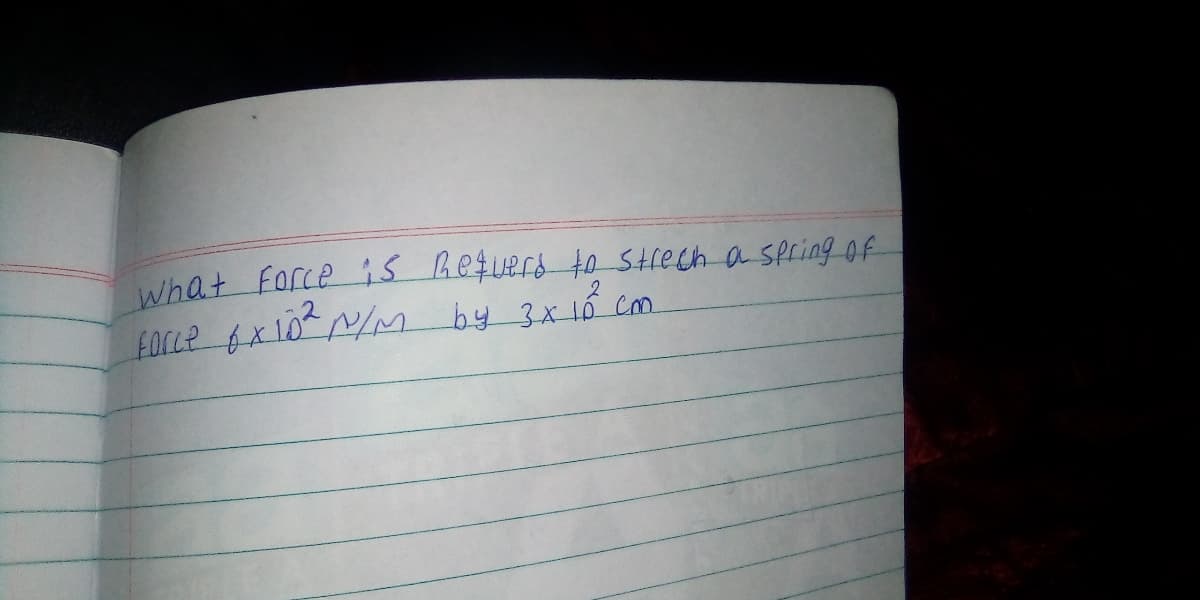 What Force is Requerd to strech a spring of
Force 6 x 10² N/M by 3 x 10² cm